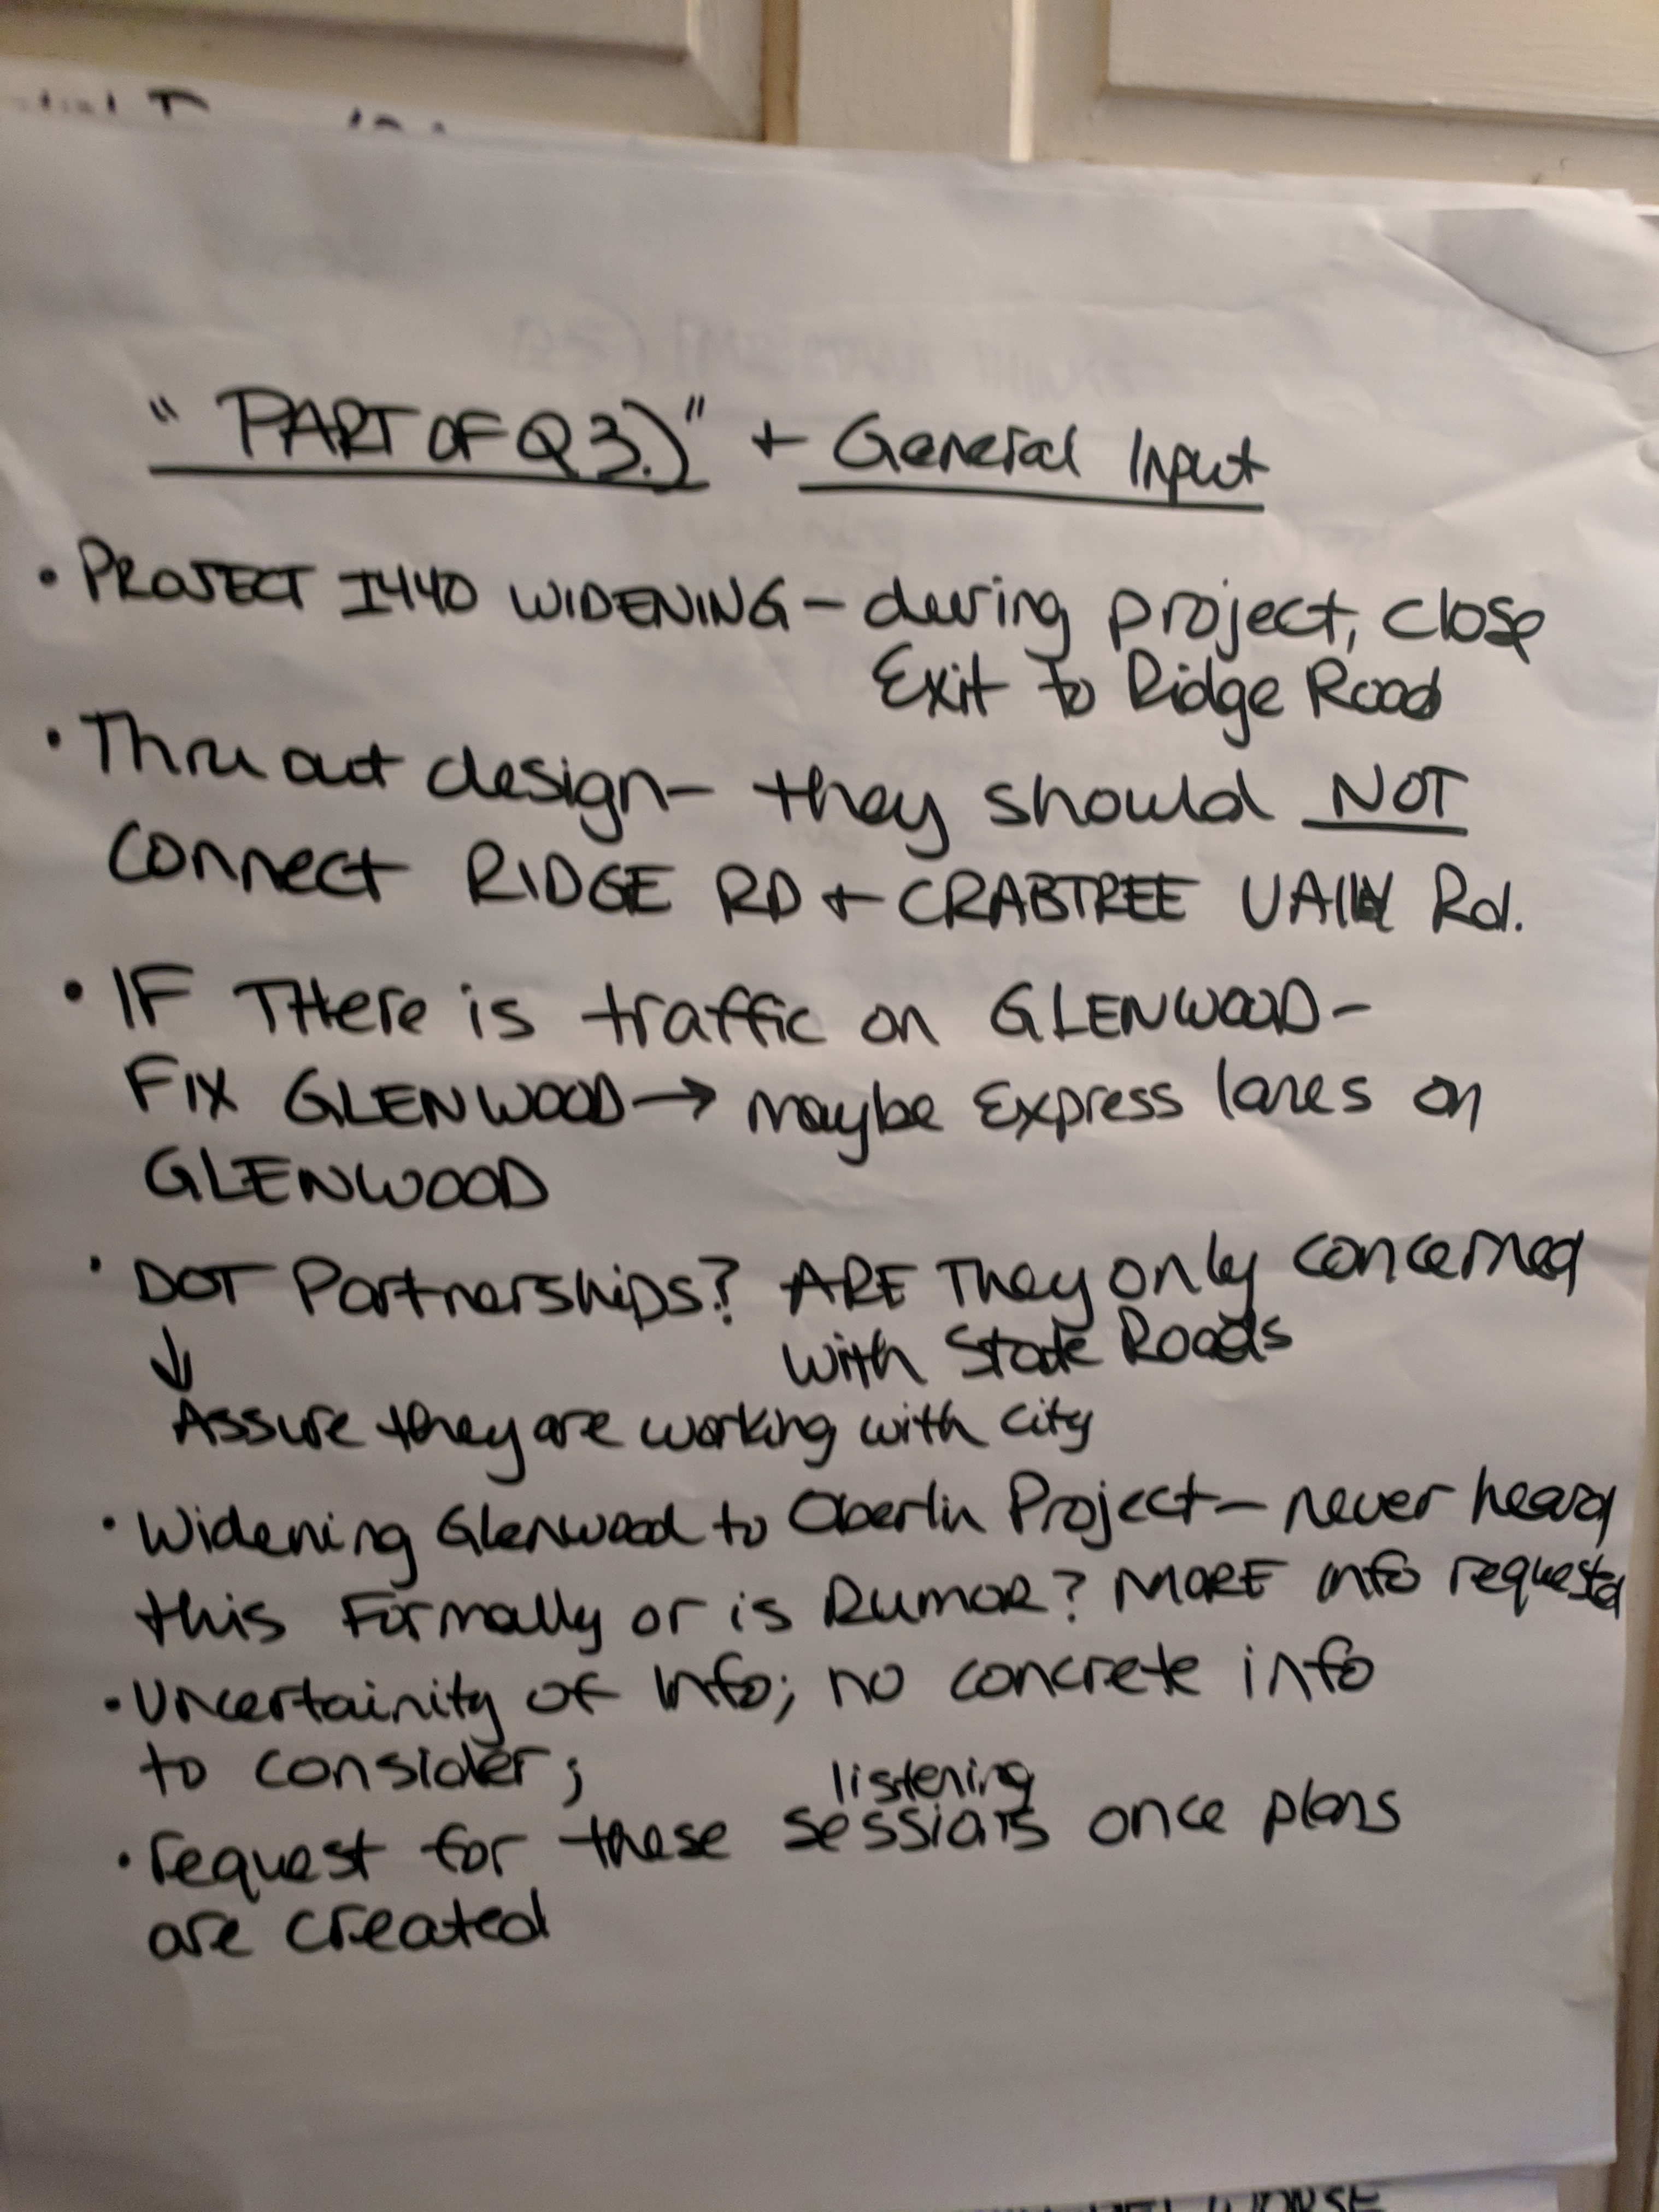 "PART OF Q3.)" + General Input
• PROJECT I440 WIDENING - during project, close
Exit to Ridge Road
• Thru out design - they should NOT
connect RIDGE RD + CRABTREE VAlly Rd.
• IF THere is traffic on GLENWOOD -
FIX GLENWOOD → maybe Express lanes on
GLENWOOD
• DOT Partnerships? ARE They only concerned
with State Roads
↓
Assure they are working with city
• Widening Glenwood to Oberlin Project - never heard
this Formally or is Rumor? MORE info requested
• Uncertainity of Info; no concrete info
to consider;
listening
• request for these sessions once plans
are created
WORSE